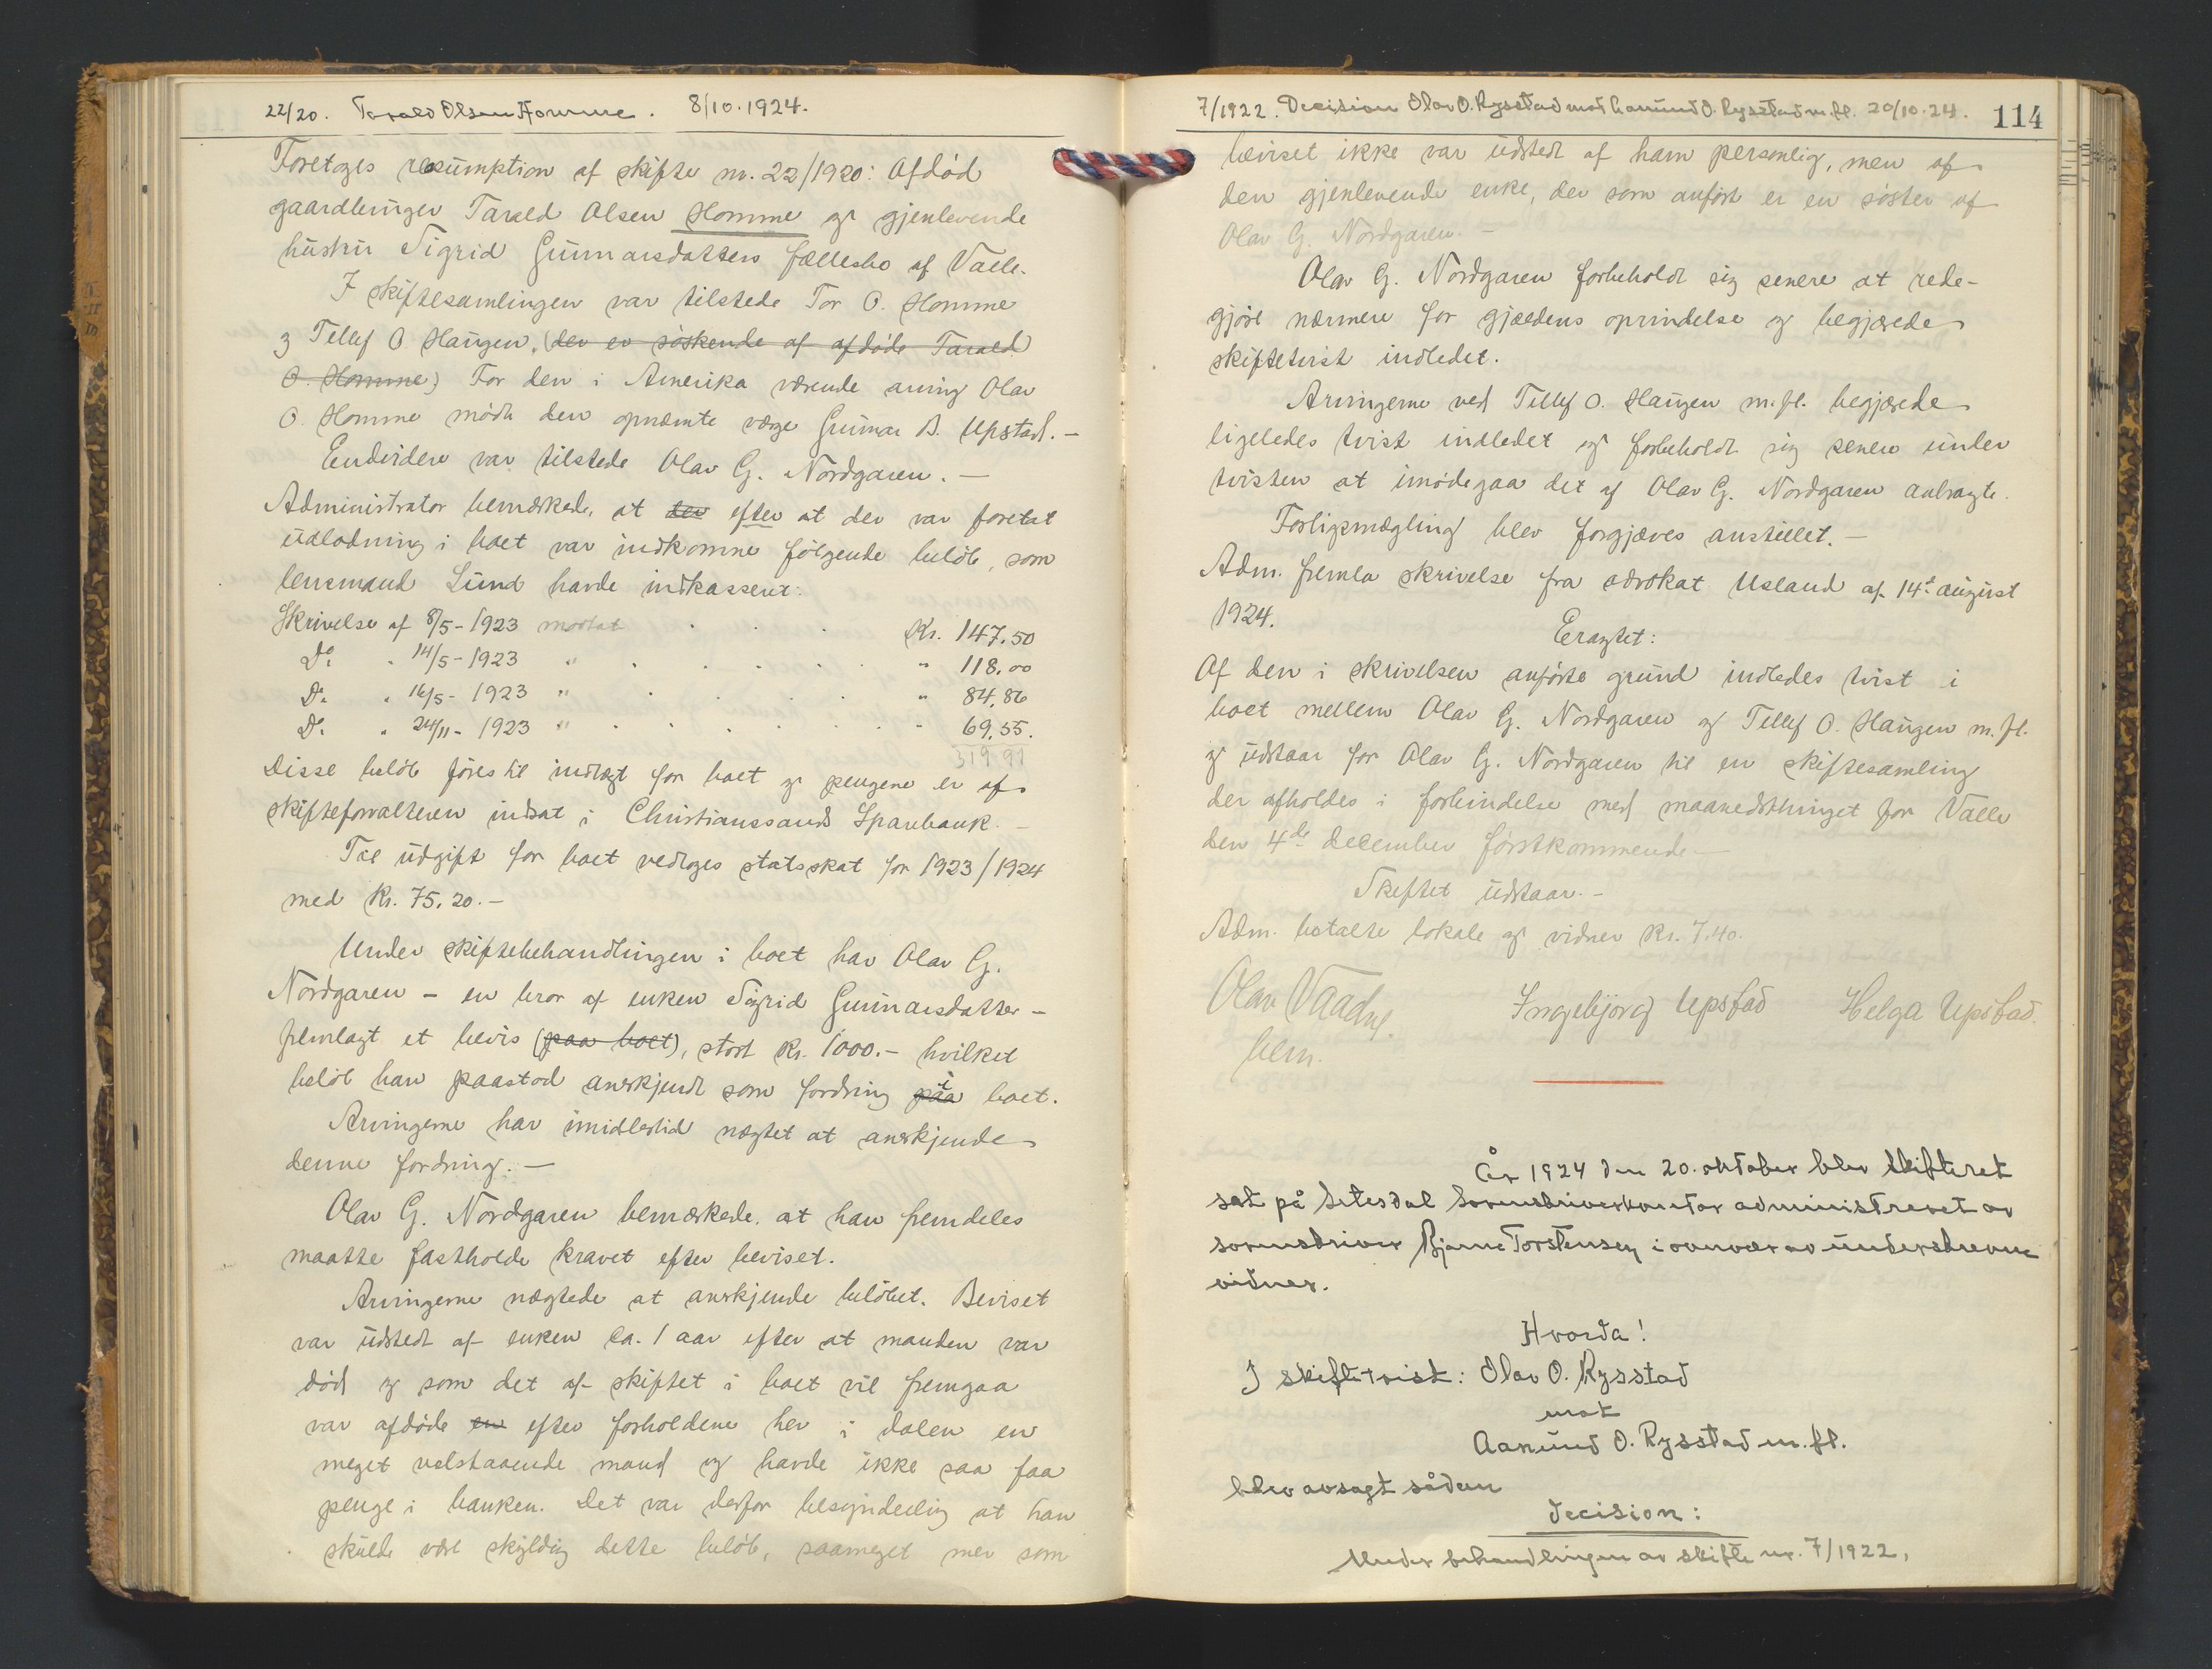 22/20. Tarald Olsen Homme. 8/10.1924.
Foretoges resumption af skifte nr. 22/1920: Afdød
gaardbruger Tarald Olsen Homme og gjenlevende
hustru Sigrid Gunnarsdatters fællesbo af Valle.
I skiftesamlingen var tilstede Tor O. Homme
og Tellef O Haugen, (der er søskende af afdøde Tarald
O. Homme) For den i Amerika værende arving Olav
O. Homme mødte den opnævnte værge Gunnar B. Upstad. -
Endvidere var tilstede Olav G. Nordgaren. -
Administrator bemærkede, at der efter at der var foretat
udlodning i boet var indkomne følgende beløb, som
lensmand Lund havde indkasseret:
Skrivelse af 8/5 - 1923 mottat . . . Kr. 147.50
Do. " 14/5 - 1923 " . . . . " 118.00
Do. " 16/5 - 1923 " . . . . " 84,86
Do. " 24/11 - 1923 " . . . . " 69.55.
319 91
Disse beløb føres til indtægt for boet og pengene er af
skifteforvalteren indsat i Christianssands Sparebank. -
Til udgift for boet vedtoges statsskat for 1923/1924
med Kr. 75.20. -
Under skiftebehandlingen i boet har Olav G.
Nordgaren - en bror af enken Sigrid Gunnarsdatter -
fremlagt et bevis (paa boet), stort Kr. 1000.- hvilket
beløb han paastod anerkjendt som fordring paa i boet.
Arvingerne har imidlertid nægtet at anerkjende
denne fordring. -
Olav G. Nordgaren bemærkede, at han fremdeles
maatte fastholde kravet efter beviset.
Arvingerne nægtede at anerkjende beløbet. Beviset
var udstedt af enken ca. 1 aar efter at manden var
død og som det af skiftet i boet vil fremgaa
var afdøde en efter forholdene her i dalen en
meget velstaaende mand og havde ikke saa faa
penge i banken. Det var derfor besynderlig at han
skulde være skyldig dette beløb, saameget mer som
7/1922. Decision Olav O. Rysstad mot Aanund O. Rysstad m. fl. 20/10.24. 114
beviset ikke var udstedt af ham personlig, men af
den gjenlevende enke, der som anført er en søster af
Olav G. Nordgaren. -
Olav G. Nordgaren forbeholdt sig senere at rede-
gjøre nærmere for gjældens oprindelse og begjærede
skiftetvist indledet.
Arvingerne ved Tellef O. Haugen m. fl. begjærede
ligeledes tvist indledet og forbeholdt sig senere under
tvisten at imødegaa det af Olav G. Nordgaren anbragte.
Forligsmægling blev forgjæves anstillet. -
Adm. fremla skrivelse fra advokat Usland af 14de august
1924.
Eragtet:
Af den i skrivelsen anførte grund indledes tvist i
boet mellem Olav G. Nordgaren og Tellef O. Haugen m. fl.
og udstaar for Olav G. Nordgaren til en skiftesamling
der afholdes i forbindelse med maanedsthinget for Valle
den 4de december førstkommende -
Skiftet udstaar. -
Adm. betalte lokale og vidner Kr. 7.40.
Olav Ingebjorg Upstad Helga Upstad.
År 1924 den 20. oktober blev skifteret
sat på Setesdal sorenskriverkontor administreret av
sorenskriver Bjarne Torstensen i overvær av underskrevne
vidner.
Hvorda!
I skiftetvist: Olav O. Rysstad
mot
Aanund O. Rysstad m. fl.
blev avsagt sådan
decision:
Under behandlingen av skifte nr. 7/1922,